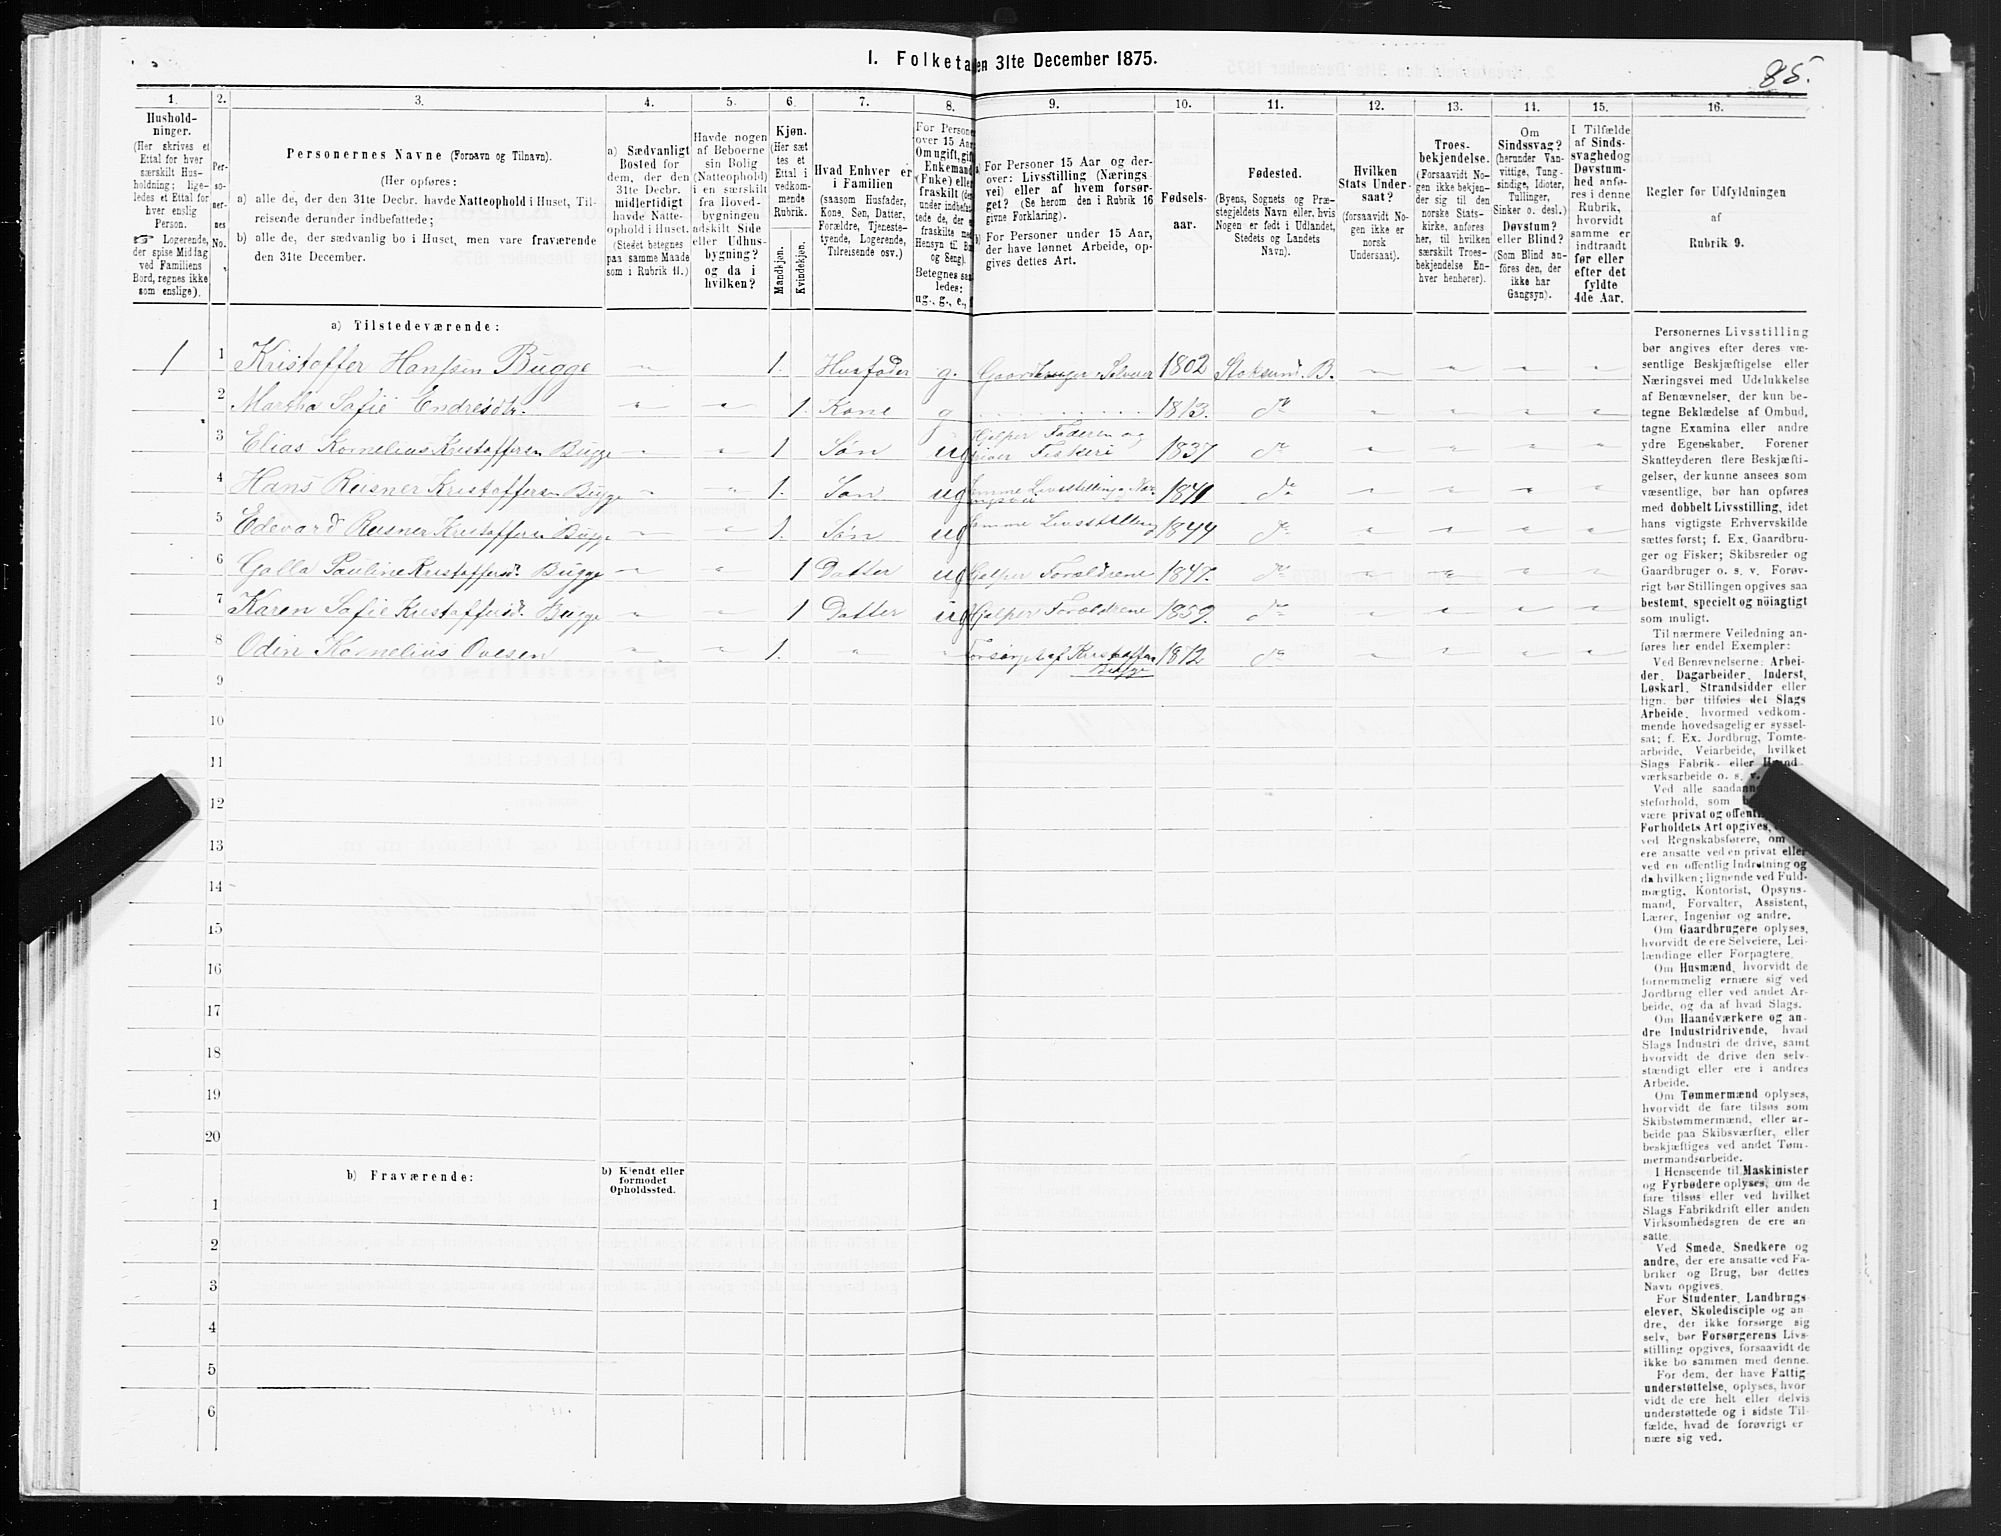 I. Folketa en 31te December 1875.
85.
1. 2. 3. 4. 5. 6. 7. 8. 9. 10. 11. 12. 13. 14. 15. 16.
Hushold-
ninger.
(Her skrives et
Ettal for hver
særskilt Hus-
holdning; lige-
ledes et Ettal for
hver enslig
Person.
☞ Logerende,
der spise Middag
ved Familiens
Bord, regnes ikke
som enslige).
Per-
so-
ner-
nes
No.
Personernes Navne (Fornavn og Tilnavn).
(Her opføres:
a) alle de, der den 31te Decbr. havde Natteophold i Huset, Til-
reisende derunder indbefattede;
b) alle de, der sædvanlig bo i Huset, men vare fraværende
den 31te December.
a) Sædvanligt
Bosted for
dem, der den
31te Decbr.
midlertidigt
havde Natte-
ophold i Huset.
(Stedet betegnes
paa samme Maade
som i Rubrik 11.)
Havde nogen
af Beboerne
sin Bolig
(Natteophold)
i en særskilt
fra Hoved-
bygningen
adskilt Side
eller Udhus-
bygning?
og da i
hvilken?
Kjøn.
(Her sæt-
tes et
Ettal i
vedkom-
mende
Rubrik.
Mandkjøn.
Kvindekjøn.
Hvad Enhver er
i Familien
(saasom Husfader,
Kone, Søn, Datter,
Forældre, Tjeneste-
tyende, Logerende,
Tilreisende osv.)
For Persone
over 15 Aar
Om ugift, gift
Enkemand
(Enke) elle
fraskilt (der
under indbefat
tede de, der e
fraskilte me
Hensyn til Bo
og Seng).
Betegnes saa
ledes:
ug., g., e.,
a) For Personer 15 Aar og der-
over: Livsstilling (Nærings-
vei) eller af hvem forsør-
get? (Se herom den i Rubrik 16
givne Forklaring).
b) For Personer under 15 Aar,
der have lønnet Arbeide, op-
gives dettes Art.
Fødsels-
aar.
Fødested.
(Byens, Sognets og Præ-
stegjeldets Navn eller, hvis
Nogen er født i Udlandet,
Stedets og Landets
Navn).
Hvilken
Stats Under-
saat?
(forsaavidt No-
gen ikke er
norsk
Undersaat).
Troes-
bekjendelse.
(Forsaavidt No-
gen ikke bekjen-
der sig til den
norske Stats-
kirke, anføres
her, til hvilken
særskilt Troes-
bekjendelse En-
hver henhører).
Om
Sindssvag?
(herunder Van-
vittige, Tung-
sindige, Idioter,
Tullinger,
Sinker o. desl.)
Døvstum?
eller Blind?
(Som Blind an-
føres den, der
ikke har
Gangsyn).
I Tilfælde
af Sinds-
svaghed og
Døvstum-
hed anfø-
res i denne
Rubrik,
hvorvidt
samme er
indtraadt
før eller
efter det
fyldte
4de Aar.
Regler for Udfyldningen
af
Rubrik 9.
a) Tilstedeværende:
1 1 Kristoffer Hanssen Bugge " 1. Husfader g. Gaardbruger Selveier 1802 Stoksund. B. " " " "
2 Martha Sofie Endresdtr. " " 1. Kone g 1813. do " " " "
3 Elias Kornelius Kristoffersen Bugge " " 1 Søn ug Hjelper Faderen og driver Fiskeri 1837 do " " " "
4 Hans Reisner Kristoffersen Bugge " " 1. Søn ug Samme Livsstilling og Næringsvei 1841 do " " " "
5 Edevard Reisner Kristoffersen Bugge " " 1. Søn ug Samme Livsstilling 1844 do " " " "
6 Golla Pauline Kristoffersd. Bugge " " 1 Datter ug Hjelper Forældrene 1847. do " " " "
7 Karen Sofie Kristoffersd. Bugge " " 1 Datter ug Hjelper Forældrene 1859. do " " " "
8 Odin Kornelius Ovesen " " 1. " " Forsørget af Kristoffer Bugge 1872 do " " " "
9
10
11
12
13
14
15
16
17
18
19
20
b) Fraværende:
b) Kjendt eller
formodet
Opholdssted.
1
2
3
4
5
6
Personernes Livsstilling
bør angives efter deres væ-
sentlige Beskjæftigelse eller
Næringsvei med Udelukkelse
af Benævnelser, der kun be-
tegne Beklædelse af Ombud,
tagne Examina eller andre
ydre Egenskaber. Forener
Skatteyderen flere Beskjæfti-
gelser, der kunne ansees som
væsentlige, bør han opføres
med dobbelt Livsstilling, idet
hans vigtigste Erhvervskilde
sættes først; f. Ex. Gaardbru-
ger og Fisker; Skibsreder og
Gaardbruger o. s. v. Forøv-
rigt bør Stillingen opgives saa
bestemt, specielt og nøiagtigt
som muligt.
Til nærmere Veiledning an-
føres her endel Exempler:
Ved Benævnelserne: Arbei-
der, Dagarbeider, Inderst,
Løskarl, Strandsidder eller
lign. bør tilføies det Slags
Arbeide, hvormed vedkom-
mende hovedsagelig er syssel-
sat; f. Ex. Jordbrug, Tomte-
arbeide, Veiarbeide, hvilket
Slags Fabrik- eller Haand-
værksarbeide o. s. v.
Ved alle saadan
steforhold, som
være privat og offent
Forholdets Art opgives,
ved Regnskabsførere, om
ere ansatte ved en privat eller
ved en offentlig Indretning og
da hvilken; lignende ved Fuld-
mægtig, Kontorist, Opsyns-
mand, Forvalter, Assistent,
Lærer, Ingeniør og andre.
Om Gaardbrugere oplyses,
hvorvidt de ere Selveiere, Lei-
lændinge eller Forpagtere.
Om Husmænd, hvorvidt de
fornemmelig ernære sig ved
Jordbrug eller ved andet Ar-
beide, og da af hvad Slags.
Om Haandværkere og an-
dre Industridrivende, hvad
Slags Industri de drive, samt
hvorvidt de drive den selv-
stændigt eller ere i andres
Arbeide.
Om Tømmermænd oplyses,
hvorvidt de fare tilsøs som
Skibstømmermænd, eller ar-
beide paa Skibsværfter, eller
beskjæftiges ved andet Tøm-
mermandsarbeide.
I Henseende til Maskinister
og Fyrbødere oplyses, om de
fare tilsøs eller ved hvilket
Slags Fabrikdrift eller anden
Virksomhedsgren de ere an-
satte.
Ved Smede, Snedkere og
andre, der ere ansatte ved Fa-
briker og Brug, bør dettes
Navn opgives.
For Studenter, Landbrugs-
elever, Skoledisciple og an-
dre, der ikke forsørge sig
selv, bør Forsørgerens Livs-
stilling opgives, forsaavidt de
ikke bo sammen med denne.
For dem, der have Fattig-
understøttelse, oplyses, hvor-
vidt de ere helt eller delvis
understøttede og i sidste Til-
fælde, hvad de forøvrigt er-
nære sig ved.